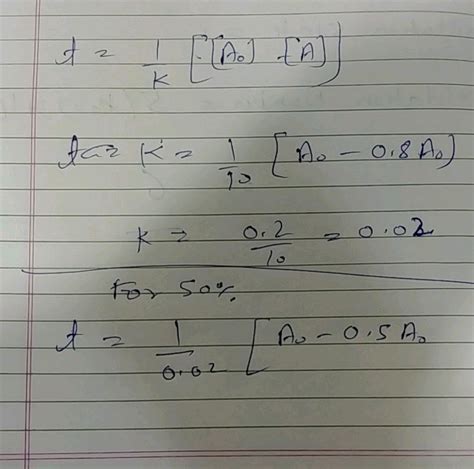 t = 1/K [[A₀] - [A]]
K = 1/10 [A₀ - 0.8 A₀]
K = 0.2/10 = 0.02
For 50%
t = 1/0.02 [A₀ - 0.5 A₀